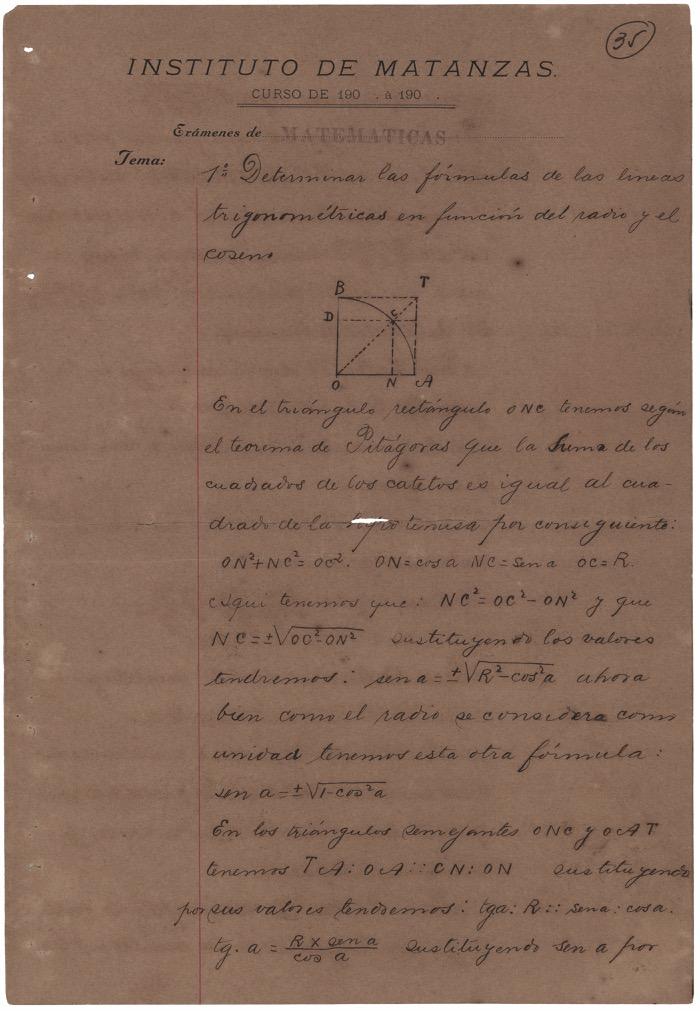 35
INSTITUTO DE MATANZAS.
CURSO DE 190 . à 190 .
Exámenes de MATEMATICAS
Tema:
1º Determinar las fórmulas de las lineas
trigonométricas en función del radio y el
coseno
B T
D C
O N A
En el triángulo rectángulo ONC tenemos según
el teorema de Pitágoras que la suma de los
cuadrados de los catetos es igual al cua-
drado de la hypotenusa por consiguiente:
ON²+NC²=OC². ON=cos a NC=sen a OC=R.
Aqui tenemos que: NC²=OC²-ON² y que
NC=±√OC²-ON² sustituyendo los valores
tendremos: sen a=±√R²-cos²a ahora
bien como el radio se considera como
unidad tenemos esta otra fórmula:
sen a=±√1-cos²a
En los triángulos semejantes ONC y OAT
tenemos TA:OA::CN:ON sustituyendo
por sus valores tendremos: tga:R::sena:cosa.
tg. a = R x sen a / cos a sustituyendo sen a por